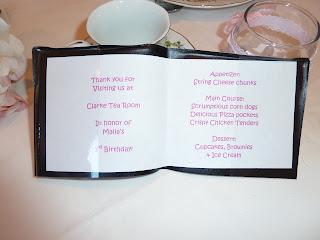 Thank you for
Visiting us at
Clarke Tea Room
In honor of
Malia's
Birthday!
Appetizer:
String Cheese chunks
Main Course:
Scrumptious corn dogs
Delicious Pizza pockets
Crispy Chicken Tenders
Dessert:
Cupcakes, Brownies
+ Ice Cream